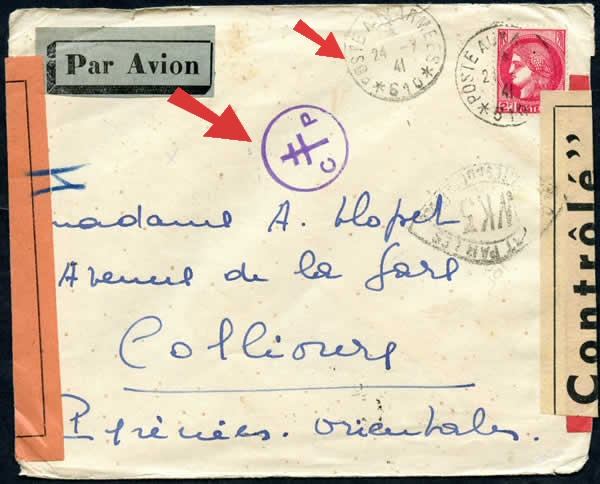 Par Avion
POSTE AUX ARMÉES
24 -7
41
* 610 *
POSTE AUX
2
41
* 610
POSTES
C P
WK3
Contrôlé"
madame A. Llopet
Avenue de la Gare
Collioure
Pyrénées. orientales.